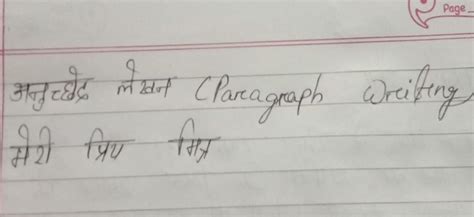 Page
अनुच्छेद लेखन (Paragraph Writing
मेरी प्रिय मित्र